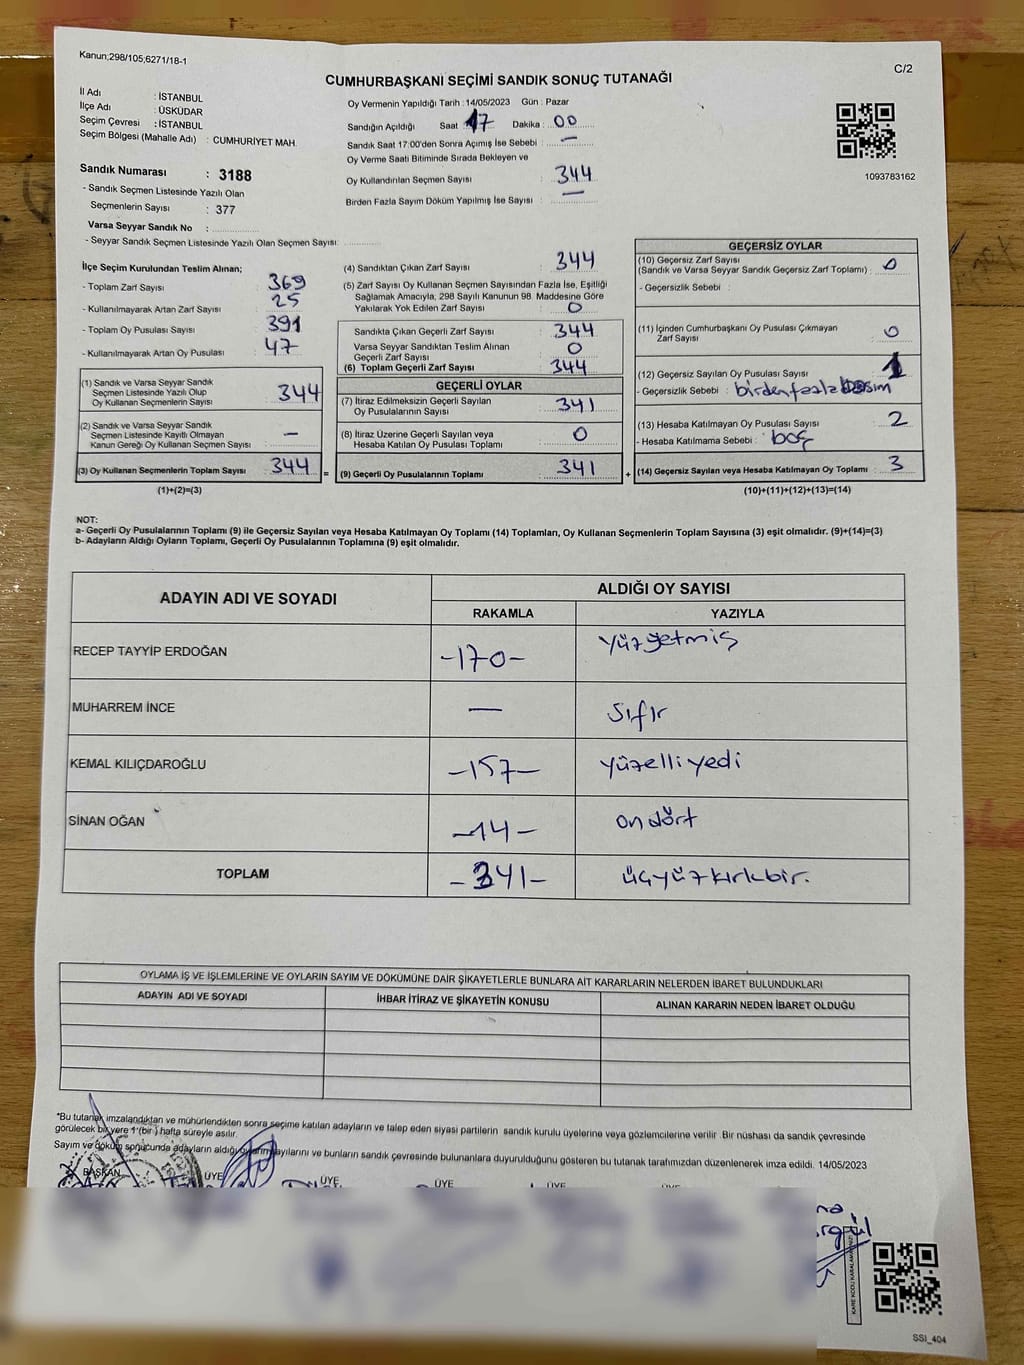 Kanun;298/105,6271/18-1
C/2
CUMHURBAŞKANI SEÇİMİ SANDIK SONUÇ TUTANAĞI
İl Adı : İSTANBUL
İlçe Adı : ÜSKÜDAR
Seçim Çevresi : İSTANBUL
Seçim Bölgesi (Mahalle Adı) : CUMHURİYET MAH.
Sandık Numarası : 3188
- Sandık Seçmen Listesinde Yazılı Olan
Seçmenlerin Sayısı : 377
Varsa Seyyar Sandık No :
- Seyyar Sandık Seçmen Listesinde Yazılı Olan Seçmen Sayısı:
Oy Vermenin Yapıldığı Tarih : 14/05/2023 Gün : Pazar
Sandığın Açıldığı Saat : 17 Dakika : 00
Sandık Saat 17:00'den Sonra Açımış İse Sebebi : —
Oy Verme Saati Bitiminde Sırada Bekleyen ve
Oy Kullandırılan Seçmen Sayısı : 344
Birden Fazla Sayım Döküm Yapılmış İse Sayısı : —
1093783162
İlçe Seçim Kurulundan Teslim Alınan;
- Toplam Zarf Sayısı : 369
- Kullanılmayarak Artan Zarf Sayısı : 25
- Toplam Oy Pusulası Sayısı : 391
- Kullanılmayarak Artan Oy Pusulası : 47
(1) Sandık ve Varsa Seyyar Sandık
Seçmen Listesinde Yazılı Olup
Oy Kullanan Seçmenlerin Sayısı : 344
(2) Sandık ve Varsa Seyyar Sandık
Seçmen Listesinde Kayıtlı Olmayan
Kanun Gereği Oy Kullanan Seçmen Sayısı : —
(3) Oy Kullanan Seçmenlerin Toplam Sayısı : 344 =
(1)+(2)=(3)
(4) Sandıktan Çıkan Zarf Sayısı : 344
(5) Zarf Sayısı Oy Kullanan Seçmen Sayısından Fazla İse, Eşitliği
Sağlamak Amacıyla, 298 Sayılı Kanunun 98. Maddesine Göre
Yakılarak Yok Edilen Zarf Sayısı : 0
Sandıkta Çıkan Geçerli Zarf Sayısı : 344
Varsa Seyyar Sandıktan Teslim Alınan
Geçerli Zarf Sayısı : 0
(6) Toplam Geçerli Zarf Sayısı : 344
GEÇERLİ OYLAR
(7) İtiraz Edilmeksizin Geçerli Sayılan
Oy Pusulalarının Sayısı : 341
(8) İtiraz Üzerine Geçerli Sayılan veya
Hesaba Katılan Oy Pusulası Toplamı : 0
(9) Geçerli Oy Pusulalarının Toplamı : 341 +
GEÇERSİZ OYLAR
(10) Geçersiz Zarf Sayısı
(Sandık ve Varsa Seyyar Sandık Geçersiz Zarf Toplamı) : 0
- Geçersizlik Sebebi :
(11) İçinden Cumhurbaşkanı Oy Pusulası Çıkmayan
Zarf Sayısı : 0
(12) Geçersiz Sayılan Oy Pusulası Sayısı : 1
- Geçersizlik Sebebi : birden fazla basım
(13) Hesaba Katılmayan Oy Pusulası Sayısı : 2
- Hesaba Katılmama Sebebi : boş
(14) Geçersiz Sayılan veya Hesaba Katılmayan Oy Toplamı : 3
(10)+(11)+(12)+(13)=(14)
NOT:
a- Geçerli Oy Pusulalarının Toplamı (9) ile Geçersiz Sayılan veya Hesaba Katılmayan Oy Toplamı (14) Toplamları, Oy Kullanan Seçmenlerin Toplam Sayısına (3) eşit olmalıdır. (9)+(14)=(3)
b- Adayların Aldığı Oyların Toplamı, Geçerli Oy Pusulalarının Toplamına (9) eşit olmalıdır.
ADAYIN ADI VE SOYADI
ALDIĞI OY SAYISI
RAKAMLA YAZIYLA
RECEP TAYYİP ERDOĞAN -170- yüzyetmiş
MUHARREM İNCE — sıfır
KEMAL KILIÇDAROĞLU -157- yüzelliyedi
SİNAN OĞAN -14- ondört
TOPLAM -341- üçyüzkırkbir.
OYLAMA İŞ VE İŞLEMLERİNE VE OYLARIN SAYIM VE DÖKÜMÜNE DAİR ŞİKAYETLERLE BUNLARA AİT KARARLARIN NELERDEN İBARET BULUNDUKLARI
ADAYIN ADI VE SOYADI İHBAR İTİRAZ VE ŞİKAYETİN KONUSU ALINAN KARARIN NEDEN İBARET OLDUĞU
*Bu tutanak imzalandıktan ve mühürlendikten sonra seçime katılan adayların ve talep eden siyasi partilerin sandık kurulu üyelerine veya gözlemcilerine verilir. Bir nüshası da sandık çevresinde
görülecek bir yere 1 (bir) hafta süreyle asılır.
Sayım ve döküm sonucunda adayların aldığı oyların sayılarını ve bunların sandık çevresinde bulunanlara duyurulduğunu gösteren bu tutanak tarafımızdan düzenlenerek imza edildi. 14/05/2023
BAŞKAN ÜYE ÜYE ÜYE ÜYE ÜYE
SSI_404